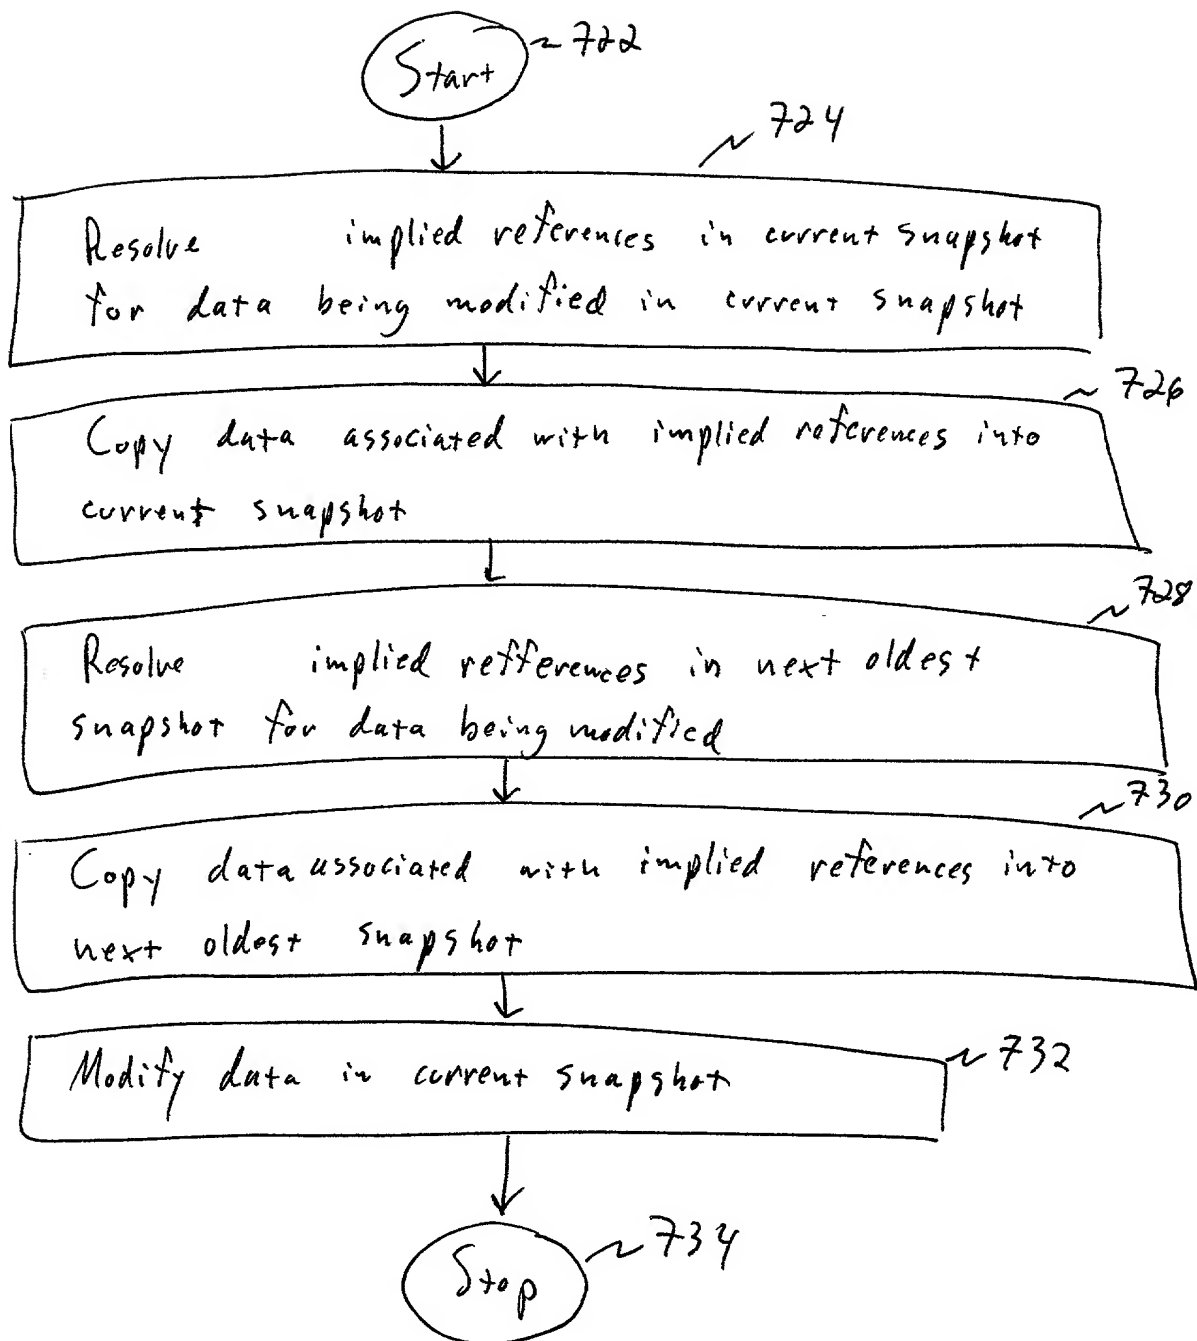 Start
722
724
Resolve implied references in current snapshot
for data being modified in current snapshot
726
Copy data associated with implied references into
current snapshot
728
Resolve implied refferences in next oldest
snapshot for data being modified
730
Copy data associated with implied references into
next oldest snapshot
Modify data in current snapshot
732
Stop
734